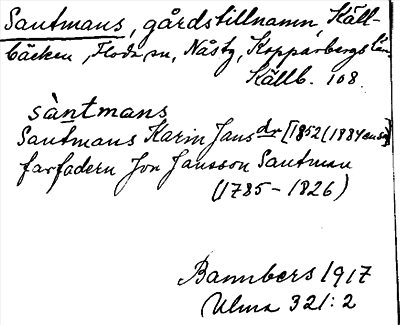 Santmans, gårdstillnamn Käll-
bäcken, Floda sn, Nåstg, Kopparbergs län
Källb. 108
sàntmans
Santmans Karin Jans dr [1852 (1884
farfadern Jon Jansson Santman
(1785-1826)
Bannbers 1917
Ulma 321:2